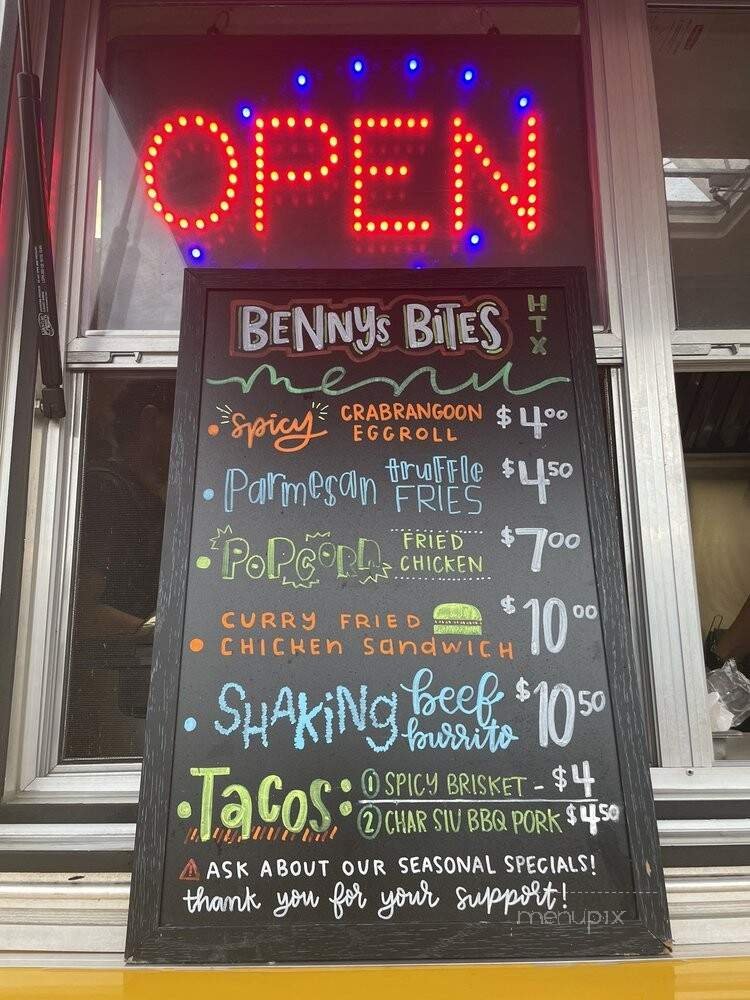 OPEN
BENNYs BITES HTX
menu
• spicy CRABRANGOON EGGROLL $4.00
• Parmesan truffle FRIES $4.50
• POPCORN FRIED CHICKEN $7.00
• CURRY FRIED CHICKEN SANDWICH $10.00
• SHAKING beef burrito $10.50
• TACOS: ① SPICY BRISKET - $4
② CHAR SIU BBQ PORK $4.50
⚠ ASK ABOUT OUR SEASONAL SPECIALS!
thank you for your support!
menupix